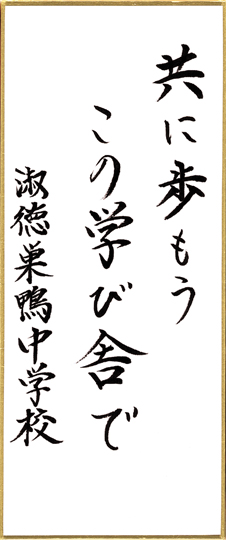 共に歩もう
この学び舎で
淑徳巣鴨中学校